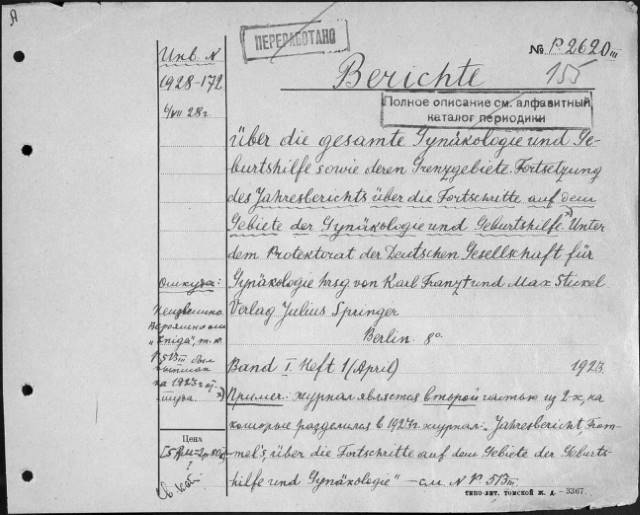 Я
ПЕРЕРАБОТАНО
№ P.2620 III
155
Инв. N
1928-172
4/VII 28 г.
Berichte
Полное описание см. алфавитный
каталог периодики
über die gesamte Gynäkologie und Ge-
burtshilfe sowie deren Grenzgebiete. Fortsetzung
des Jahresberichts über die Fortschritte auf dem
Gebiete der Gynäkologie und Geburtshilfe.*) Unter
dem Protektorat der Deutschen Gesellschaft für
Gynäkologie hrsg von Karl Franzt und Max Stickel
Verlag Julius Springer
Berlin 8°
Band I. Heft 1 (April) 1923
Откуда:
Неизвестно
"Kniga", т.к.
P. 513 III был
на 1923 г.
Примеч: журнал является второй частью из 2-х, на
которые разделился в 1923 г журнал - "Jahresbericht, From-
mel's, über die Fortschritte auf dem Gebiete der Geburts-
hilfe und Gynäkologie" - см. N P. 513 III.
Цена
?
Св. каб
ТИПО-ЛИТ. ТОМСКОЙ Ж. Д. - 3367.